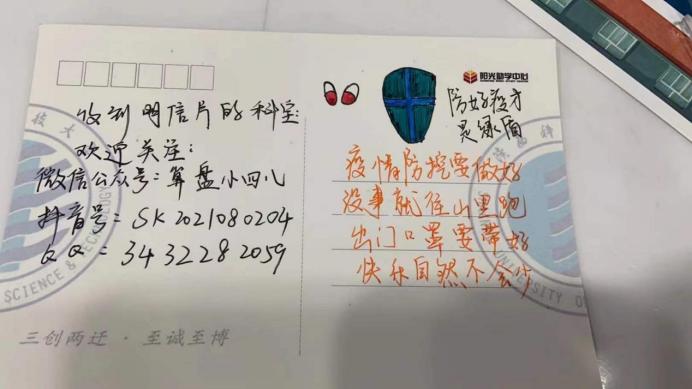 收到明信片的科宝
欢迎关注:
微信公众号:算盘小四儿
抖音号=SK2021080204
QQ=3432282059
阳光助学中心
防好疫才
是绿盾
疫情防控要做好
没事就往山里跑
出门口罩要带好
快乐自然不会少
三创两迁·至诚至博
SCIENCE & TECHNOLOGY
UNIVERSITY O